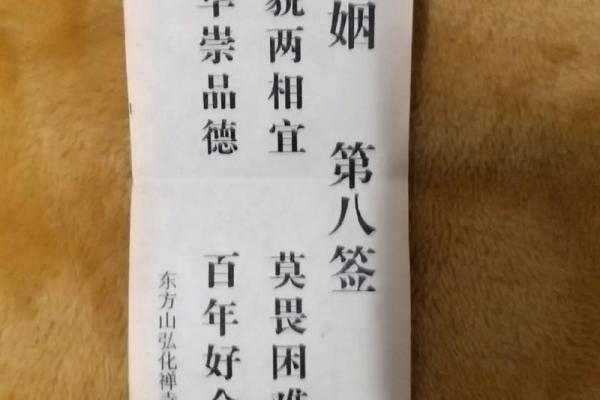 姻 第八签
貌两相宜 莫畏困难
年崇品德 百年好合
东方山弘化禅寺